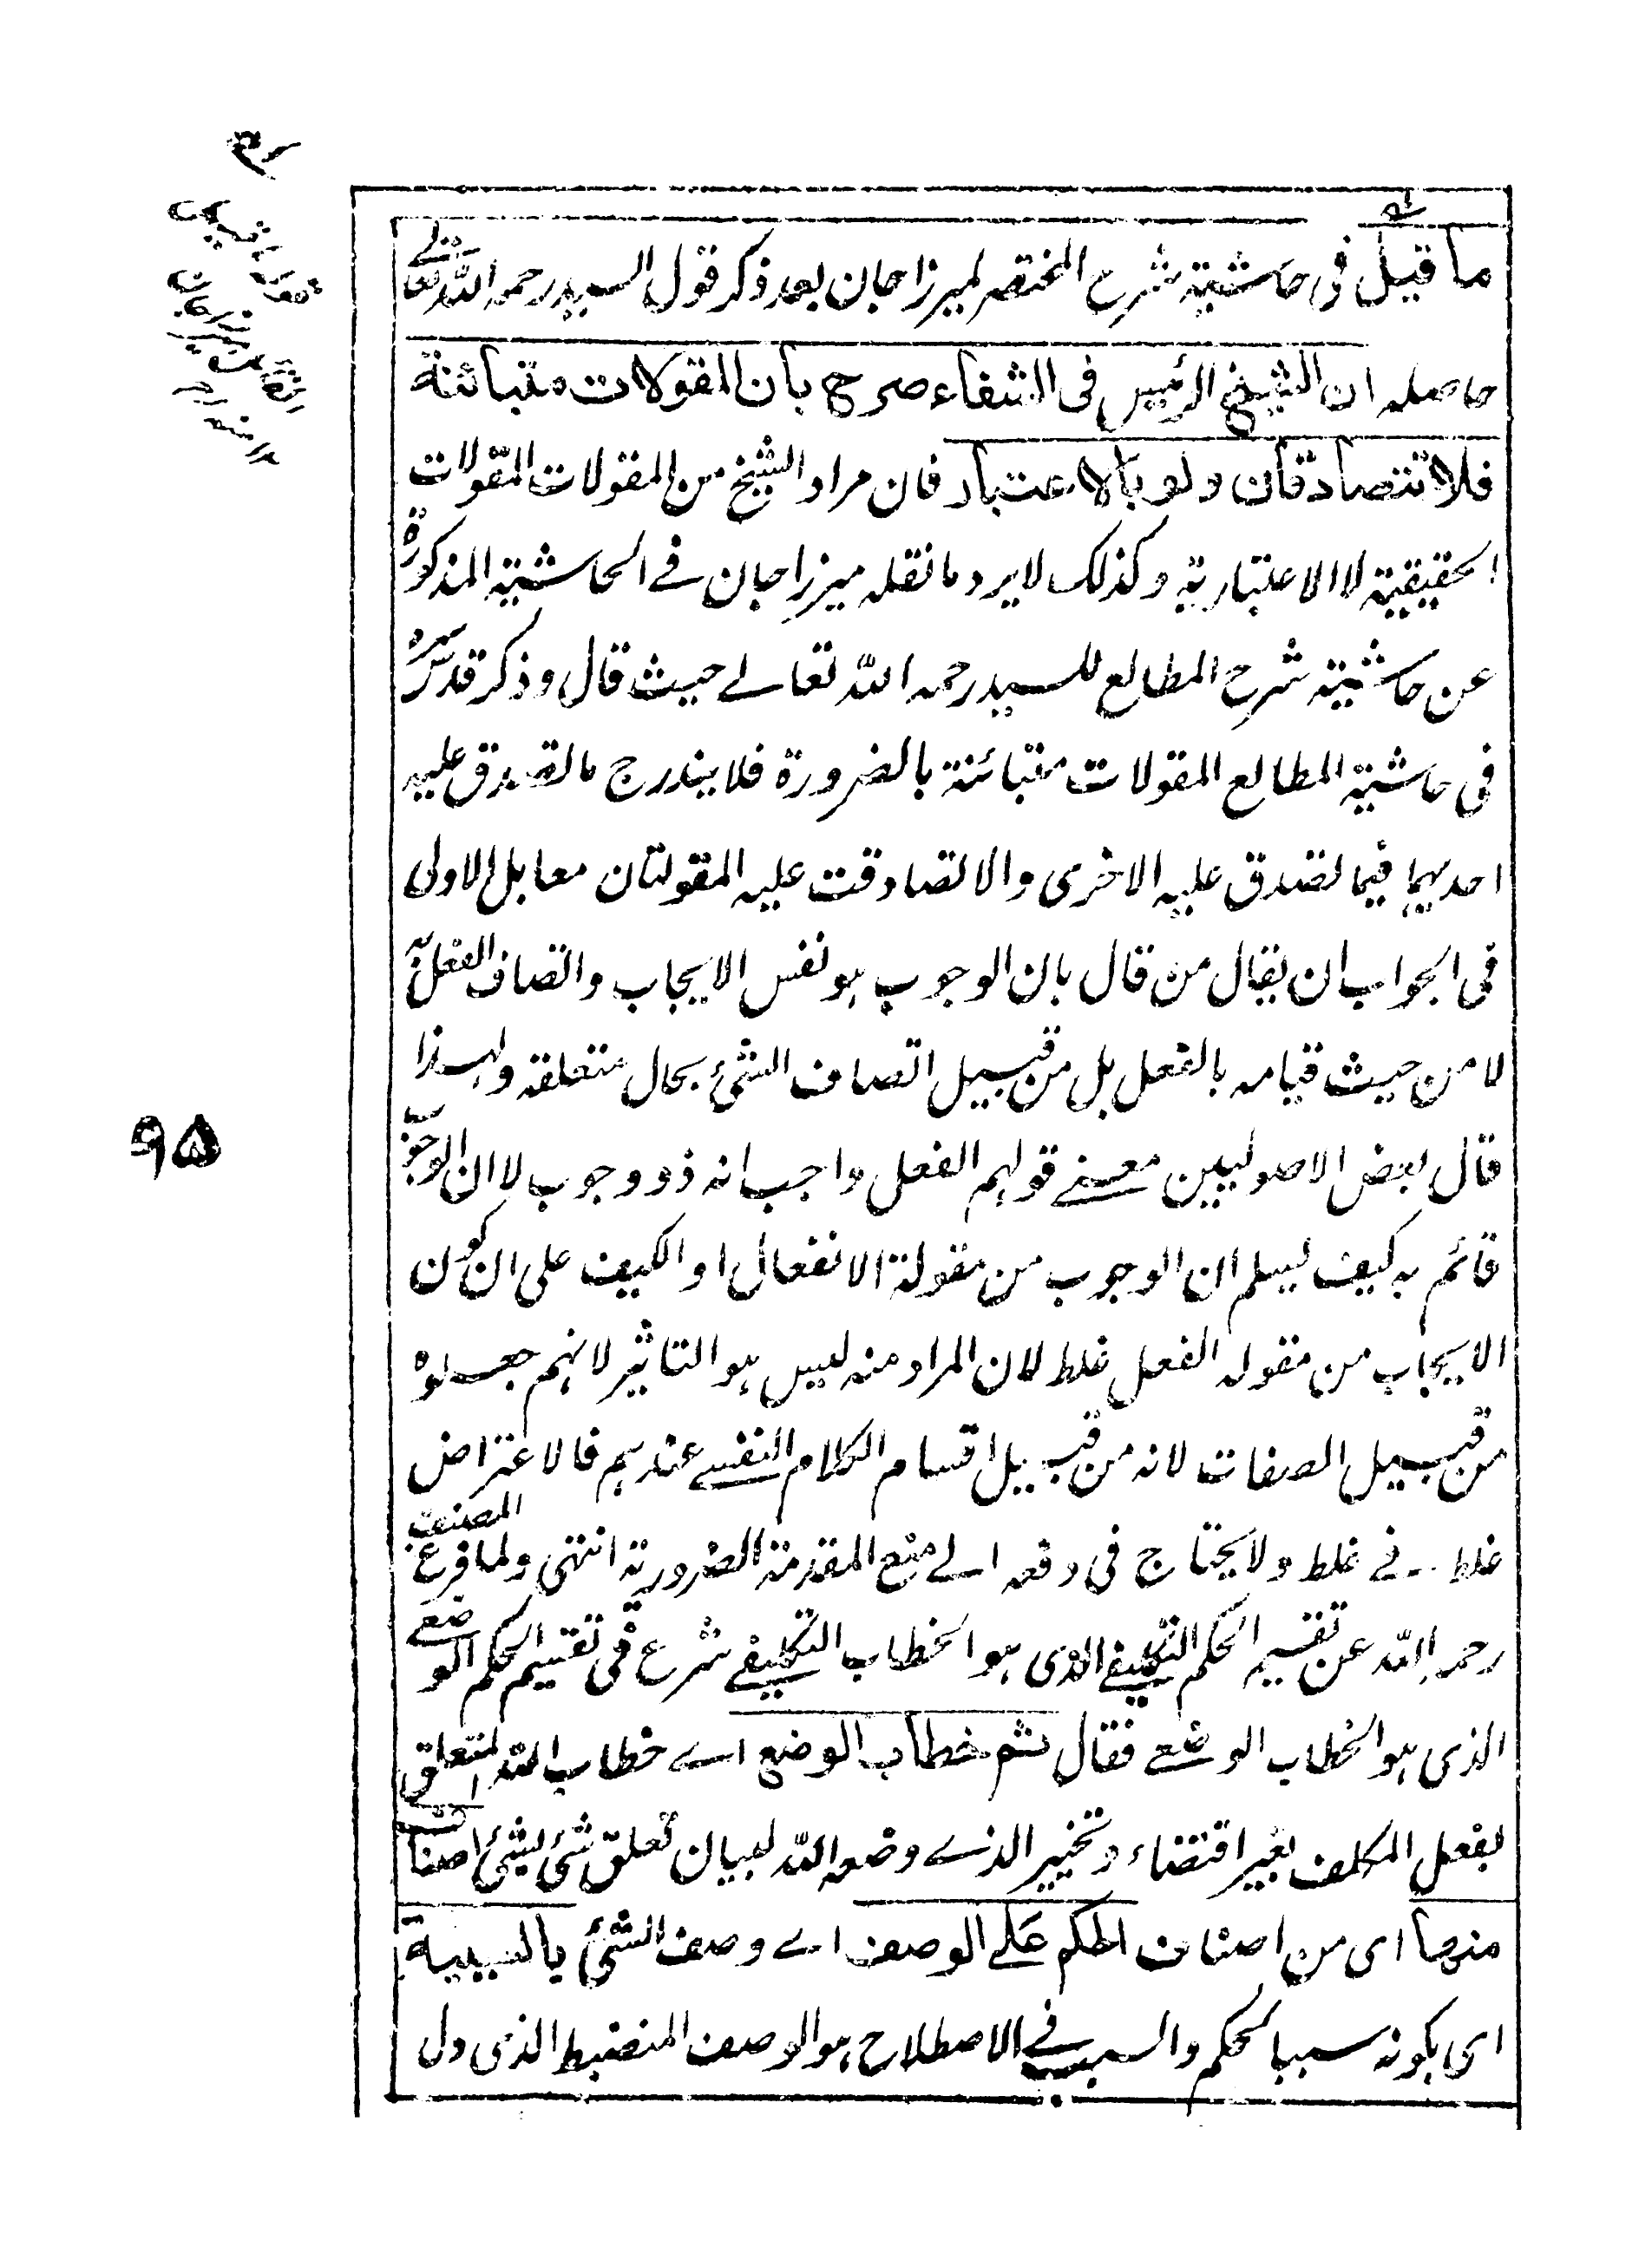 ما قيل في حاشية شرح المختصر لميرزاجان بعد ذكر قول السيد رحمه الله تعالى
حاصله ان الشيخ الرئيس في الشفاء صرح بان المقولات متبائنة
فلا تتصادقان ولو بالاعتبار فان مراد الشيخ من المقولات المقولات
الحقيقية لا الاعتبارية وكذلك لا يرد ما نقله ميرزاجان في الحاشية المذكورة
عن حاشية شرح المطالع للسيد رحمه الله تعالى حيث قال وذكر قدس سره
في حاشية المطالع المقولات متبائنة بالضرورة فلا يندرج ما تصدق عليه
احديهما فيما تصدق عليه الاخرى والا تصادقت عليه المقولتان معا بل الاولى
في الجواب ان يقال من قال بان الوجوب هو نفس الايجاب واتصاف الفعل به
لا من حيث قيامه بالفعل بل من قبيل اتصاف الشئ بحال متعلقه ولهذا
قال بعض الاصوليين معنى قولهم الفعل واجب انه ذو وجوب لا ان الوجوب
قائم به كيف يسلم ان الوجوب من مقولة الانفعال او الكيف على ان كون
الايجاب من مقولة الفعل غلط لان المراد منه ليس هو التاثير لانهم جعلوه
من قبيل الصفات لانه من قبيل اقسام الكلام النفسي عندهم فالاعتراض
غلط في غلط ولا يحتاج في دفعه الى منع المقدمة الضرورية انتهى ولما فرغ المصنف
رحمه الله عن تقسيم الحكم التكليفي الذي هو الخطاب التكليفي شرع في تقسيم الحكم الوضعي
الذي هو الخطاب الوضعي فقال ثم خطاب الوضع اي خطاب الله المتعلق
بفعل المكلف بغير اقتضاء وتخيير الذي وضعه الله لبيان تعلق شئ بشئ اصناف
منها اي من اصناف الحكم على الوصف اي وصف الشئ بالسببية
اي بكونه سببا لحكم والسبب في الاصطلاح هو الوصف المنضبط الذي دل
۹۵